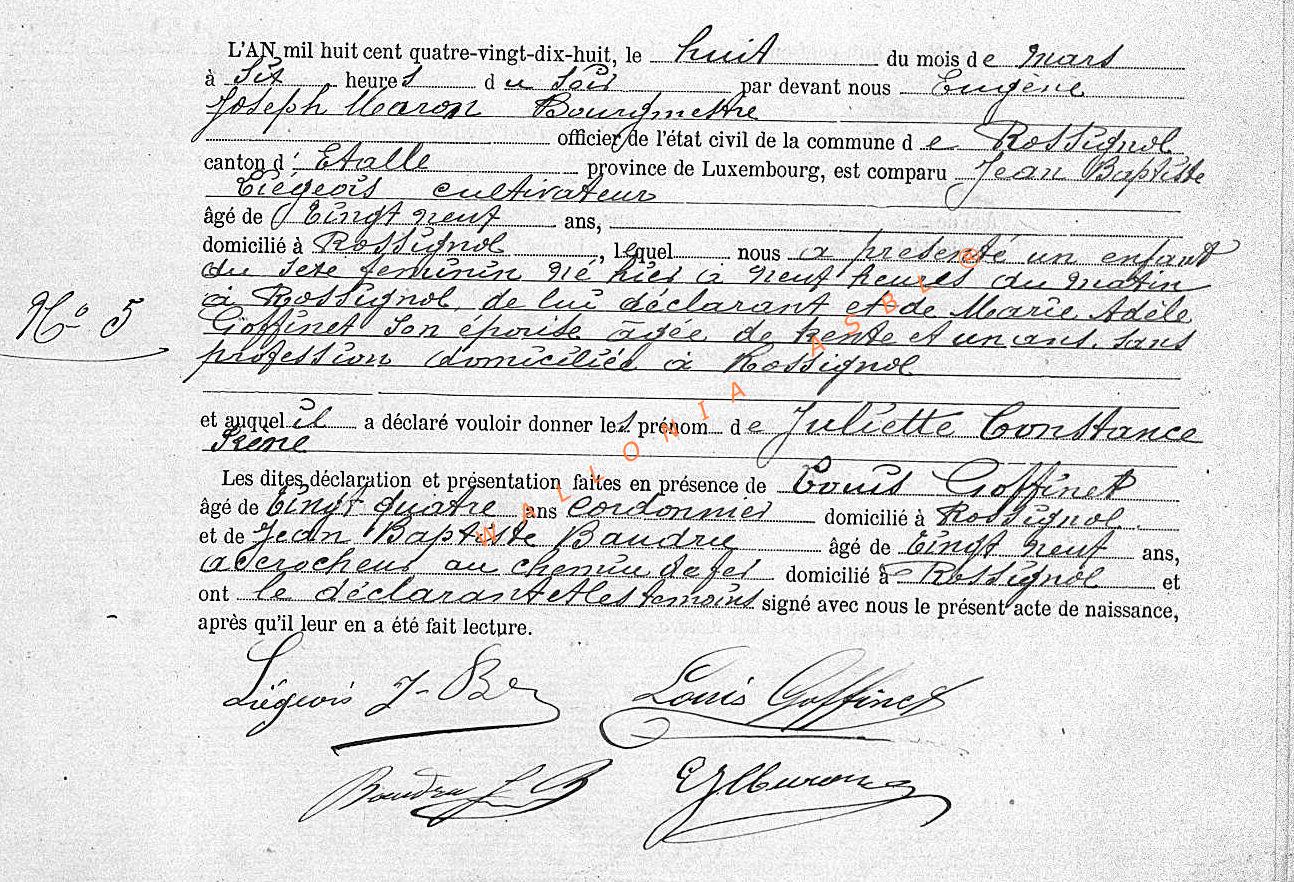 L'AN mil huit cent quatre-vingt-dix-huit, le huit du mois de mars
à six heures du soir par devant nous Eugène
Joseph Maron Bourgmestre
officier de l'état civil de la commune de Rossignol
canton d'Etalle province de Luxembourg, est comparu Jean Baptiste
Liégeois cultivateur
âgé de vingt neuf ans,
domicilié à Rossignol, lequel nous a presenté un enfant
du sexe feminin né hier à neuf heures du matin
à Rossignol, de lui déclarant et de Marie Adèle
Goffinet son épouse âgée de trente et un ans, sans
profession domiciliée à Rossignol
N° 5
et auquel il a déclaré vouloir donner les prénom de Juliette Constance
Irène
Les dites déclaration et présentation faites en présence de Louis Goffinet
âgé de vingt quatre ans cordonnier domicilié à Rossignol
et de Jean Baptiste Baudru âgé de vingt neuf ans,
accrocheur au chemin de fer domicilié à Rossignol et
ont le déclarant et les temoins signé avec nous le présent acte de naissance,
après qu'il leur en a été fait lecture.
Liégeois J-B Louis Goffinet
Baudru J B EJMaron
WALLONIA ASBL @